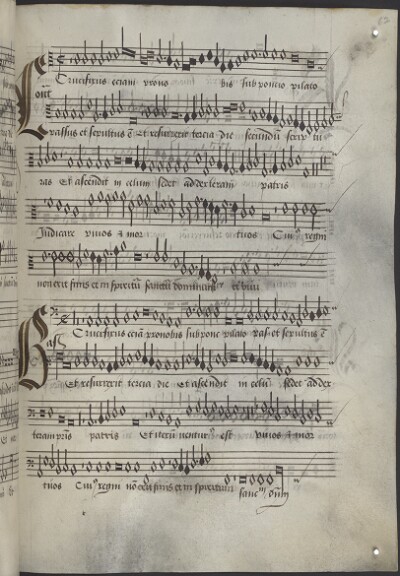 Crucifixus eciam prono bis sub poncio pilato
passus et sepultus ē Et resurrexit tercia die secundū scrip tu
ras Et ascendit in celum sedet ad dexteram patris
Judicare vivos & mor tuos Cuiꝰ regni
non erit finis et in spiritū sanctū dominum et vivi
Crucifixus eciā pro nobis sub ponc pilato pas et sepultus ē
Bass
Et resurrexit tercia die Et ascendit in celū sedet ad dex
teram pris patris Et iterū venturꝰ est vivos & mor
tuos Cuiꝰ regni nō erit finis et in spiritum sanc